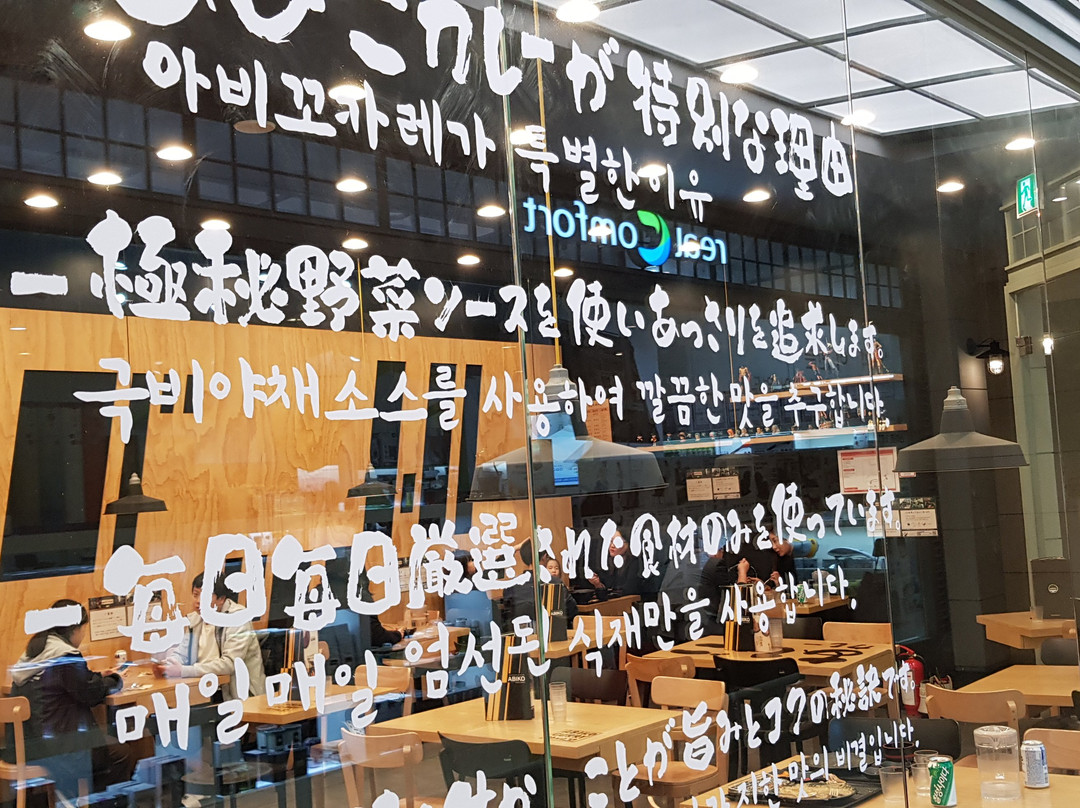 カレーが特別な理由
아비꼬카레가 특별한이유
real comfort
ー極秘野菜ソースを使いあっさりを追求します。
극비야채소스를 사용하여 깔끔한 맛을 추구합니다.
ー毎日毎日厳選された食材のみを使っています。
매일매일 엄선된 식재만을 사용합니다.
ことが旨みとコクの秘訣です。
진한 맛의 비결입니다.
ABIKO